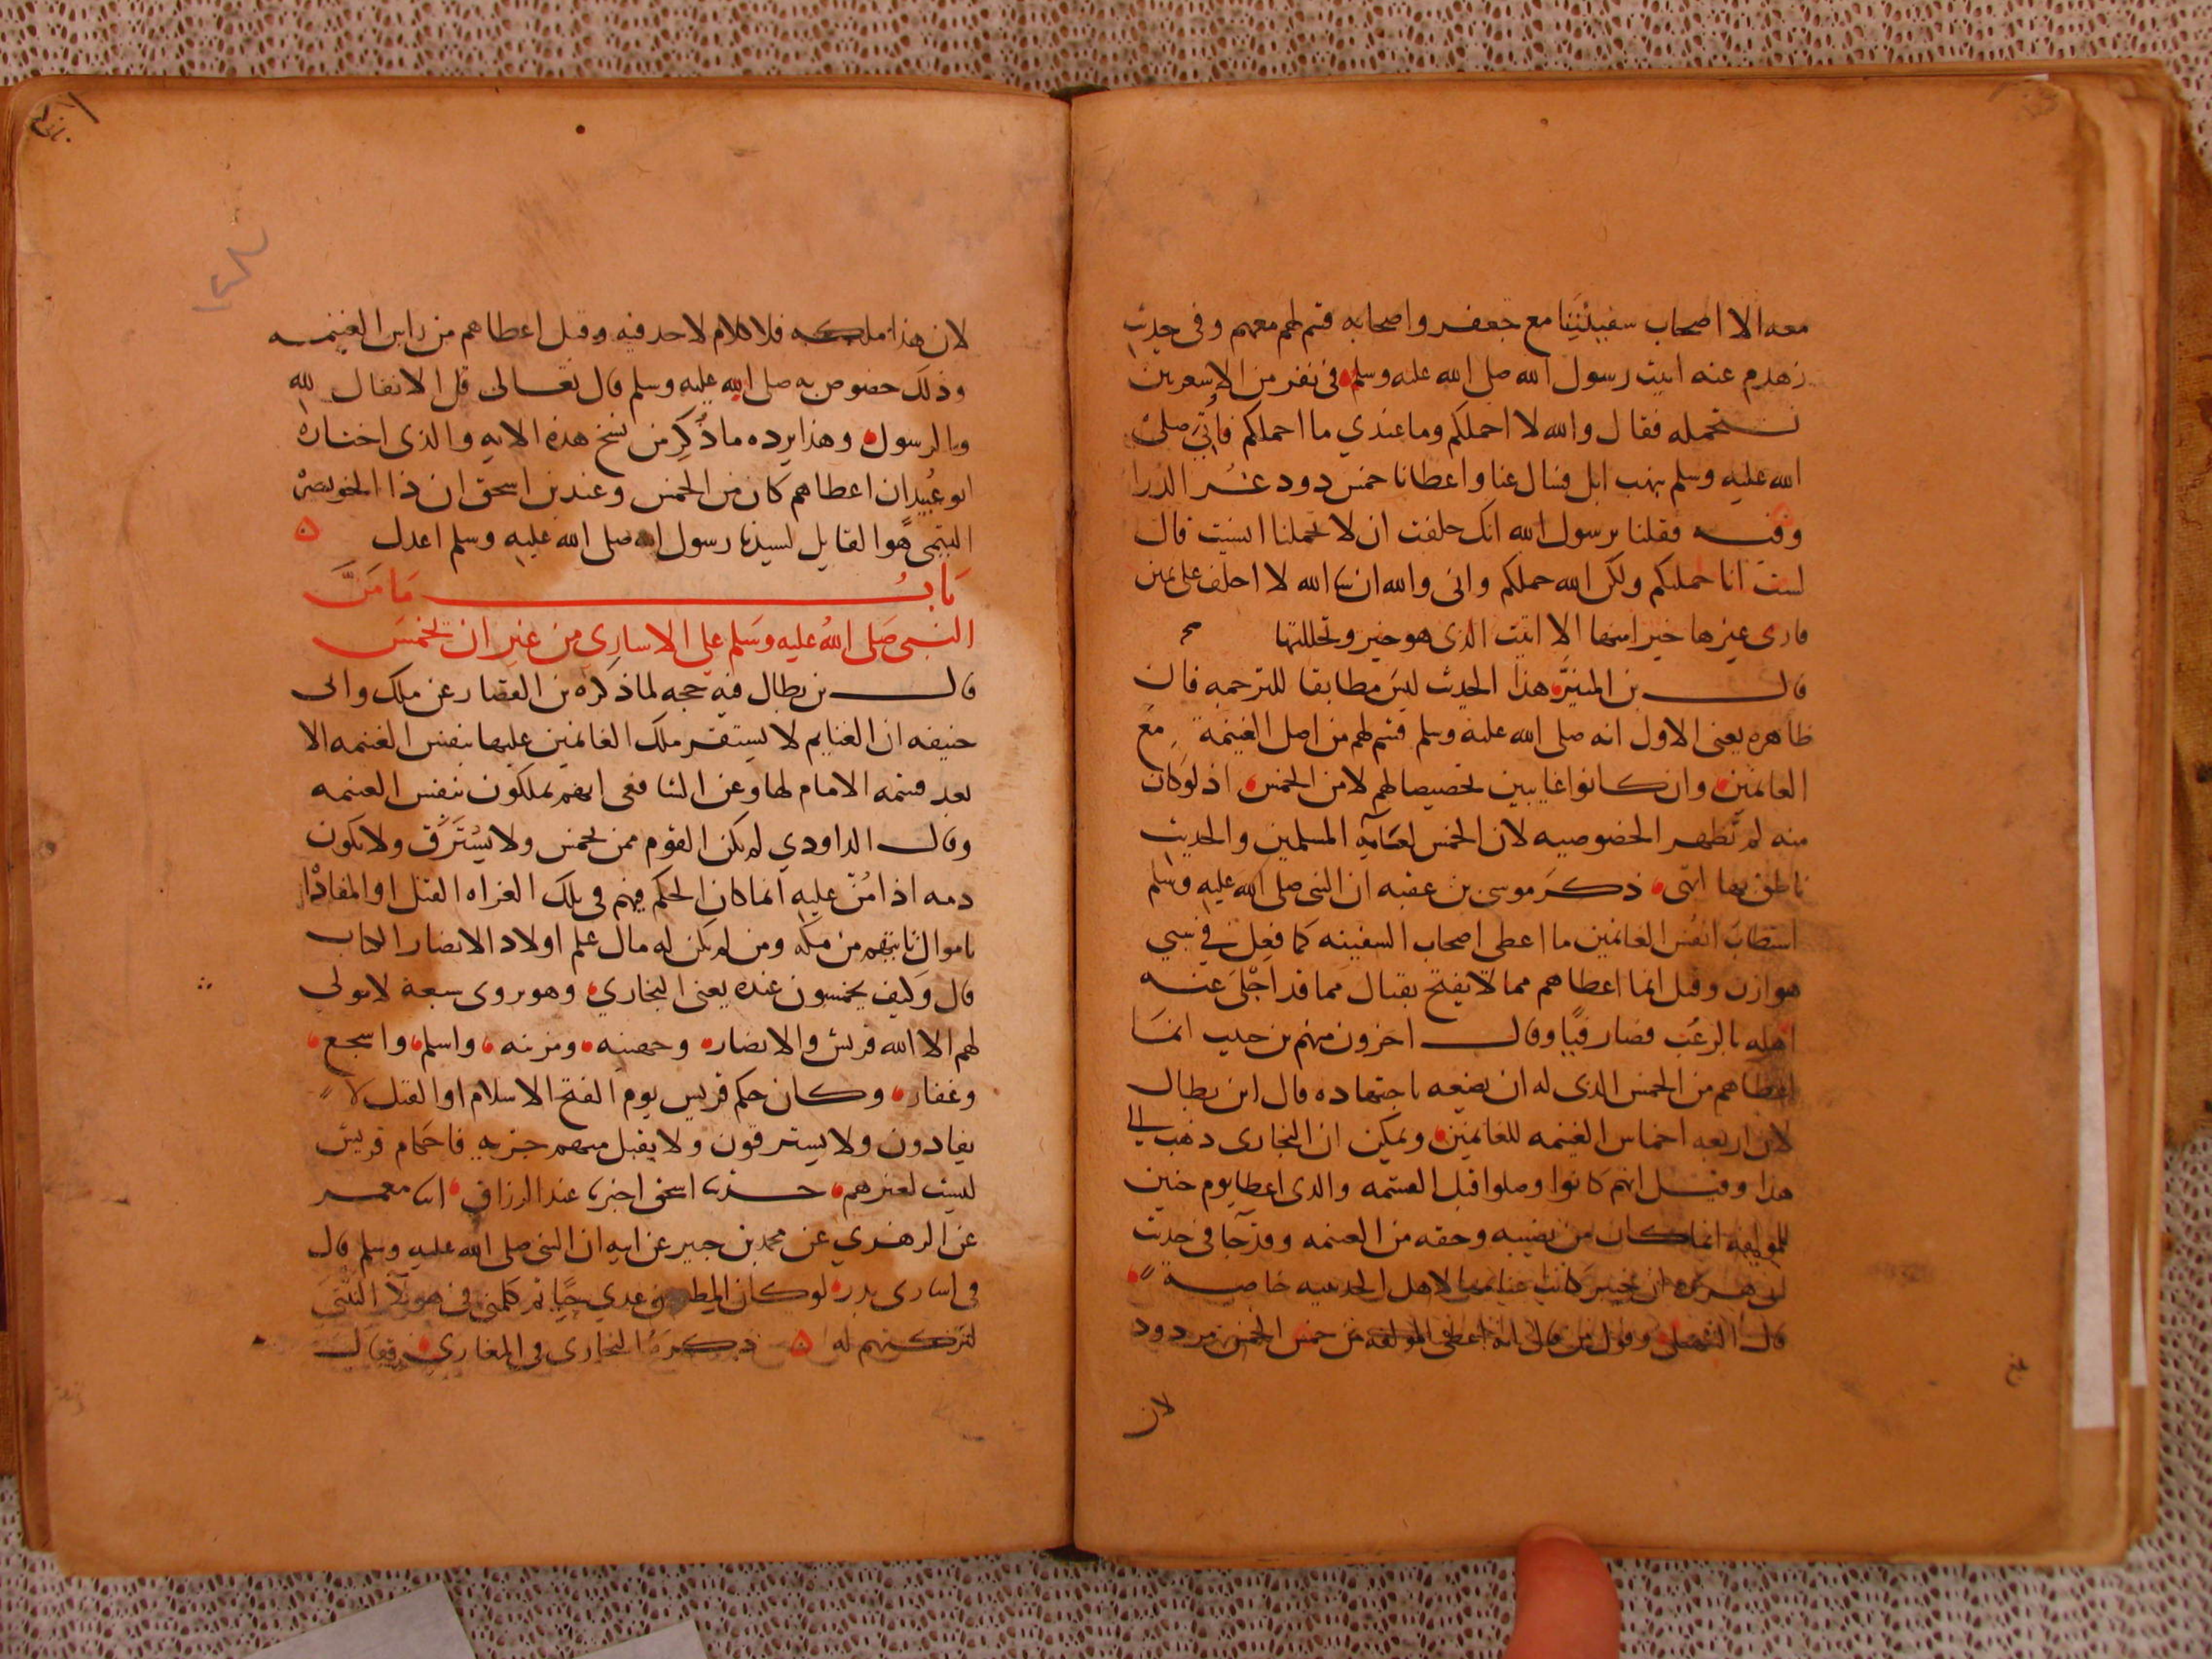 معه الا اصحاب سفينتنا مع جعفر واصحابه قسم لهم معهم وفى حديث
زهدم عنه اتيت رسول الله صلى الله عليه وسلم فى نفر من الاسعريين
نستحمله فقال والله لا احملكم وما عندي ما احملكم فاُتِىَ صلى
الله عليه وسلم بنهب ابل فسال عنا واعطانا خمس دود غُر الذرا
وفيه فقلنا يرسول الله انك حلفت ان لا تحملنا انسيت قال
لست انا حملتكم ولكن الله حملكم وانى والله ان شا الله لا احلف على يمين
فارى غيرها خير امنها الا اتيت الذى هو خير وتحللتها
قال بن المنيّر هذا الحديث ليس مطابقا للترجمه فان
ظاهره يعنى الاول انه صلى الله عليه وسلم قسم لهم من اصل الغنيمة مع
الغانمين وان كانوا غايبين تخصيصا لهم لا من الخمس اذ لوكان
منه لم تظهر الخصوصيه لان الخمس لعامه المسلمين والحديث
ناطق بها انتهى ذكر موسى بن عقبه ان النبى صلى الله عليه وسلم
استطاب انفس الغانمين ما اعطى اصحاب السفينه كما فعل في سبي
هوازن وقيل انما اعطاهم مما لا يفتح بقتال مما قد اجلى عنه
اهله بالرعب فصار فيًا وقال اخرون منهم بن حبيب انما
اعطاهم من الخمس الذى له ان يضعه باجتهاده قال ابن بطال
لان اربعه اخماس الغنيمه للغانمين ويمكن ان البخارى ذهب الى
هذا وقيل انهم كانوا وصلوا قبل القسمه والذى اعطا يوم حنين
للمولفه انما كان من نصيبه وحقه من الغنمه وقد جا فى حديث
ابى هريره ان خيبر كانت غنايمها لاهل الحديبيه خاصه
قال السهيلي وقول من قال انه اعطى المولفه من خمس الخمس مردود
لان
١٢٨
لان هذا ملكه فلا كلام لاحد فيه وقيل اعطاهم من راس الغنيمه
وذلك خصوص به صلى الله عليه وسلم قال تعالى قل الانفال لله
والرسول وهذا يرده ما ذُكِر من نسخ هذه الايه والذى اختاره
ابو عُبيد ان اعطاهم كان من الخمس وعند بن اسحق ان ذا الخويصره
التيمى هو القايل لسيدنا رسول الله صلى الله عليه وسلم اعدل ه
بَابُ مَا مَنَّ
النبى صَلى اللهُ عليه وسَلم على الاسارى من غير ان يخمسَ
قال بن بطال فيه حجه لما ذكره بن القصار عن ملك وابى
حنيفه ان الغنايم لا يستقر ملك الغانمين عليها بنفس الغنمه الا
بعد قسمه الامام لها وعن الشافعى انهم يملكون بنفس الغنمه
وقال الداودي لم يكن القوم ممن يخمس ولا يُسْتَرَق ولا تكون
دمه اذا مُنّ عليه انما كان الحكم فيهم فى تلك الغزاه القتل او المفادا
باموال تاتيهم من مكه ومن لم يكن له مال علم اولاد الانصار الكتاب
قال وكيف يخمسون عنده يعنى البخاري وهو يروى سبعة لا مولى
لهم الا الله قريش والانصار وجهينه ومزينه واسلم واشجع
وغفار وكان حكم قريش يوم الفتح الاسلام او القتل لا
يفادون ولا يسترقون ولا يقبل منهم جزيه فاحكام قريش
ليست لغيرهم حدثنا اسحق اخبرنا عبد الرزاق انا معمر
عن الزهري عن محمد بن جبير عن ابيه ان النبى صلى الله عليه وسلم قال
فى اسارى بدر لو كان المطعم بن عدي حيًا ثم كلمنى فى هولا النتنى
لتركتهم له ه ذكره البخارى فى المغازى فقال